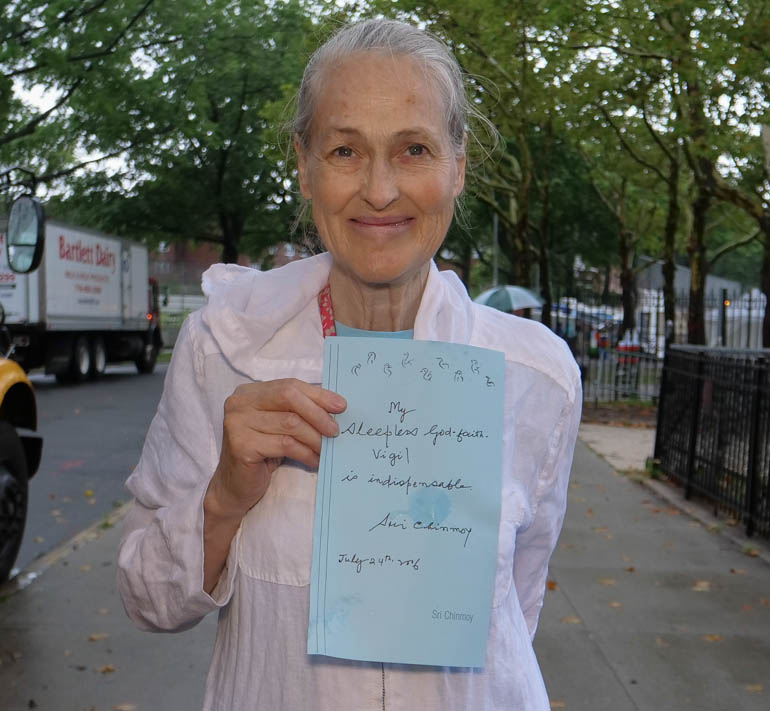 Bartlett Dairy
My
Sleepless God-faith-
Vigil
is indispensable.
Sri Chinmoy
July 24th, 2006
Sri Chinmoy